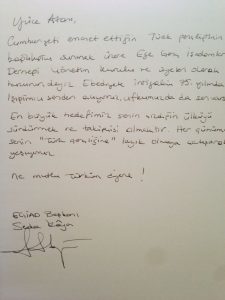 Yüce Atam,
Cumhuriyeti emanet ettiğin Türk gençliğinin
bağlılığını sunmak üzere Ege Genç İşadamları
Derneği Yönetim Kurulu ve üyeleri olarak
huzurundayız. Ebediyete intikalin 75. yılında
senden alıyoruz, ufkumuzda da sen varsın
En büyük hedefimiz senin ülküyü
sürdürmek ve takipçisi olmaktır. Her günümüzü
senin "Türk gençliğine" layık olmaya çalışarak
yaşıyoruz.
Ne mutlu Türküm diyene!
EGİAD Başkanı
Seda Kaya